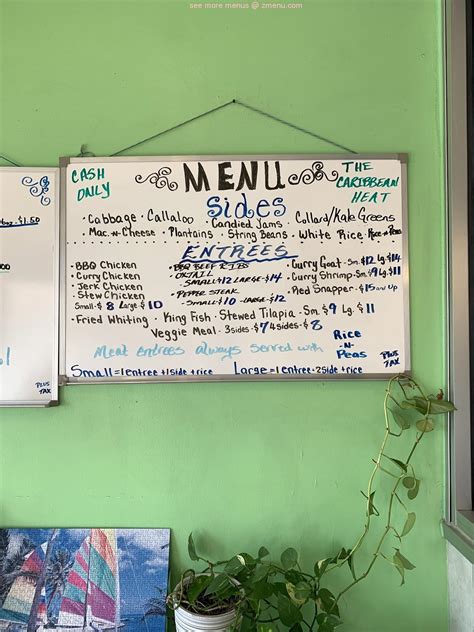 see more menus @ zmenu.com
CASH ONLY
MENU
THE CARIBBEAN HEAT
Sides
• Cabbage • Callaloo • Candied Jams • Collard/Kale Greens
• Mac-n-Cheese • Plantains • String Beans • White Rice • Rice-n-Peas
ENTREES
• BBQ Chicken
• Curry Chicken
• Jerk Chicken
• Stew Chicken
Small-$8 Large-$10
• BBQ BEEF RIBS
• OXTAIL
SMALL-$12 LARGE-$14
• PEPPER STEAK
SMALL-$10 -LARGE-$12
• Curry Goat- Sm.$12 Lg.$14
• Curry Shrimp-Sm.$9 Lg.$11
• Red Snapper - $15 and up
• Fried Whiting • King Fish • Stewed Tilapia - Sm.$9 Lg.$11
Veggie Meal - 3sides-$7 4sides-$8
Meat Entrees always Served with
Rice
-N-
Peas
PLUS TAX
Small=1entree+1side+rice
Large=1entree•2side+rice
$1.50
PLUS
TAX